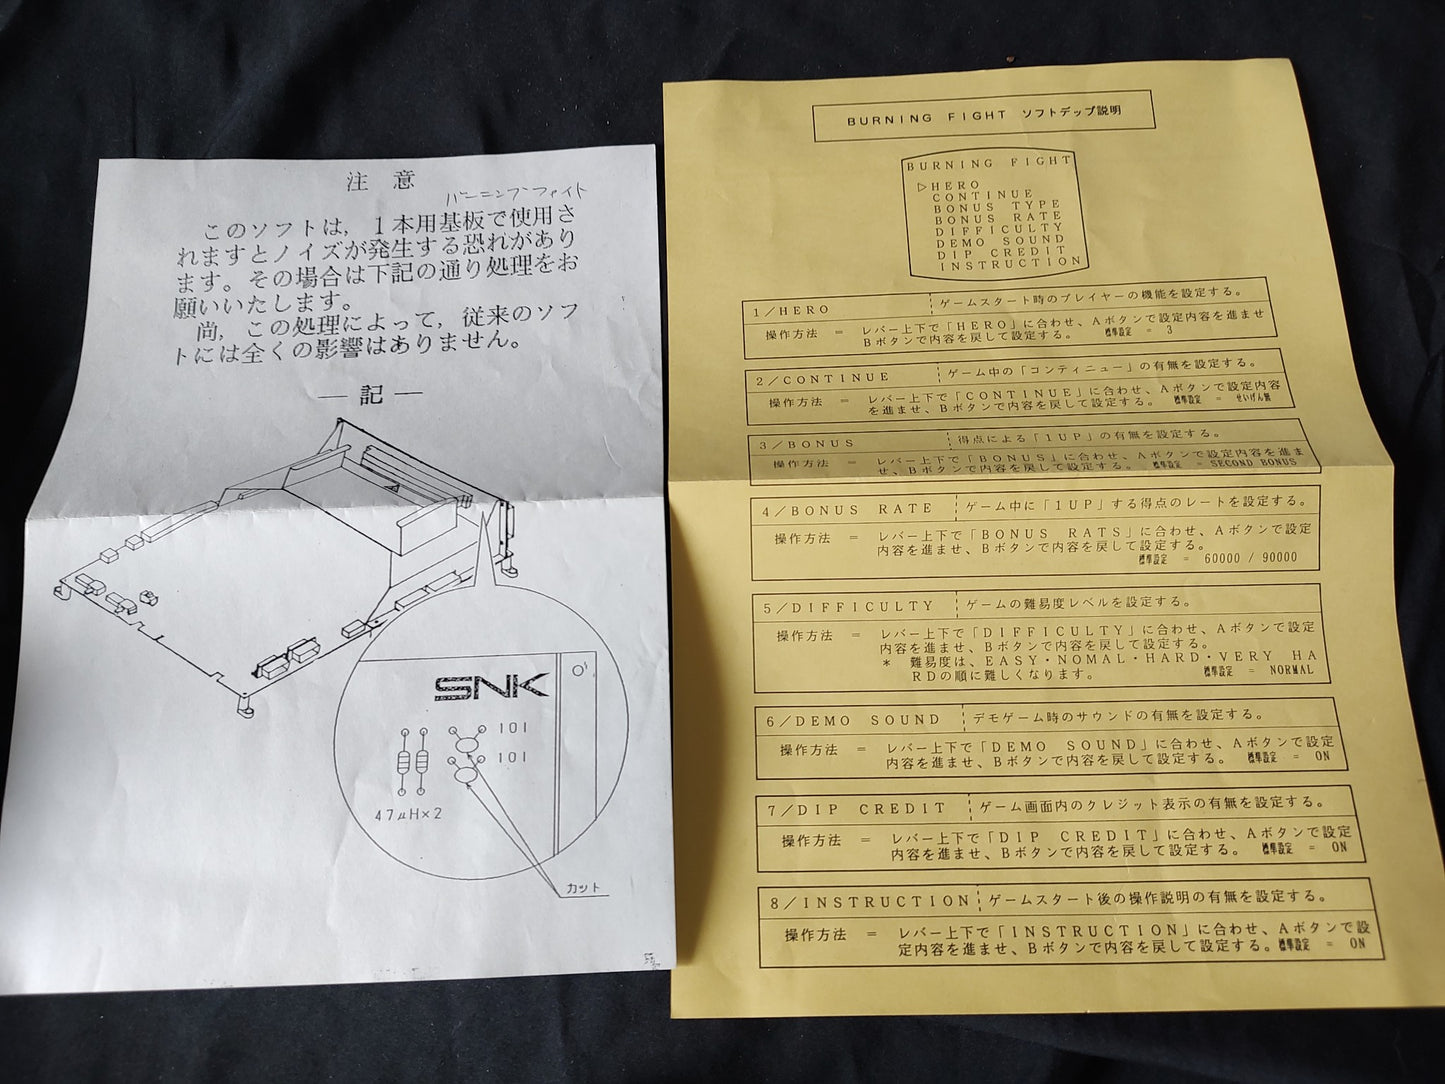 注 意
バーニングファイト
このソフトは，１本用基板で使用さ
れますとノイズが発生する恐れがあり
ます。その場合は下記の通り処理をお
願いいたします。
尚，この処理によって，従来のソフ
トには全くの影響はありません。
― 記 ―
SNK
101
101
47μH×2
カット
BURNING FIGHT ソフトデップ説明
BURNING FIGHT
▷HERO
CONTINUE
BONUS TYPE
BONUS RATE
DIFFICULTY
DEMO SOUND
DIP CREDIT
INSTRUCTION
1／HERO ゲームスタート時のプレイヤーの機能を設定する。
操作方法 ＝ レバー上下で「HERO」に合わせ、Aボタンで設定内容を進ませ
Bボタンで内容を戻して設定する。 標準設定 ＝ 3
2／CONTINUE ゲーム中の「コンティニュー」の有無を設定する。
操作方法 ＝ レバー上下で「CONTINUE」に合わせ、Aボタンで設定内容
を進ませ、Bボタンで内容を戻して設定する。 標準設定 ＝ せいげん無
3／BONUS 得点による「1UP」の有無を設定する。
操作方法 ＝ レバー上下で「BONUS」に合わせ、Aボタンで設定内容を進ま
せ、Bボタンで内容を戻して設定する。 標準設定 ＝ SECOND BONUS
4／BONUS RATE ゲーム中に「1UP」する得点のレートを設定する。
操作方法 ＝ レバー上下で「BONUS RATS」に合わせ、Aボタンで設定
内容を進ませ、Bボタンで内容を戻して設定する。
標準設定 ＝ 60000 / 90000
5／DIFFICULTY ゲームの難易度レベルを設定する。
操作方法 ＝ レバー上下で「DIFFICULTY」に合わせ、Aボタンで設定
内容を進ませ、Bボタンで内容を戻して設定する。
＊ 難易度は、EASY・NOMAL・HARD・VERY HA
RDの順に難しくなります。 標準設定 ＝ NORMAL
6／DEMO SOUND デモゲーム時のサウンドの有無を設定する。
操作方法 ＝ レバー上下で「DEMO SOUND」に合わせ、Aボタンで設定
内容を進ませ、Bボタンで内容を戻して設定する。 標準設定 ＝ ON
7／DIP CREDIT ゲーム画面内のクレジット表示の有無を設定する。
操作方法 ＝ レバー上下で「DIP CREDIT」に合わせ、Aボタンで設定
内容を進ませ、Bボタンで内容を戻して設定する。 標準設定 ＝ ON
8／INSTRUCTION ゲームスタート後の操作説明の有無を設定する。
操作方法 ＝ レバー上下で「INSTRUCTION」に合わせ、Aボタンで設
定内容を進ませ、Bボタンで内容を戻して設定する。標準設定 ＝ ON